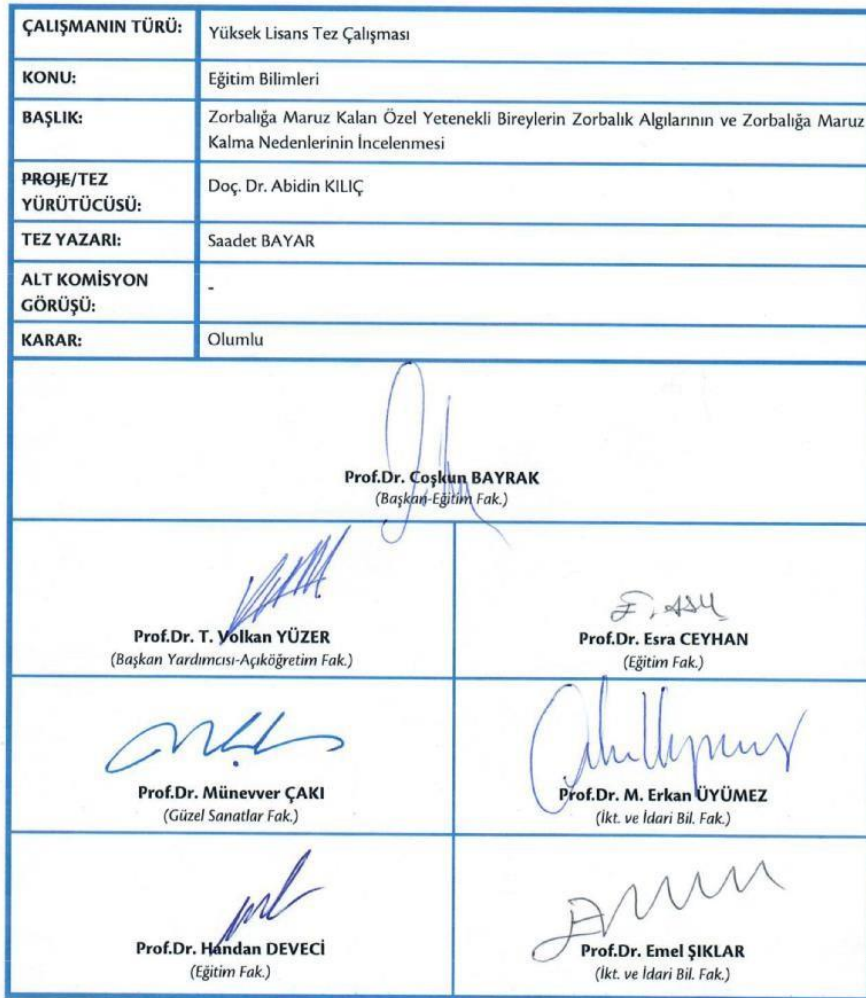 ÇALIŞMANIN TÜRÜ: Yüksek Lisans Tez Çalışması
KONU: Eğitim Bilimleri
BAŞLIK: Zorbalığa Maruz Kalan Özel Yetenekli Bireylerin Zorbalık Algılarının ve Zorbalığa Maruz
Kalma Nedenlerinin İncelenmesi
PROJE/TEZ
YÜRÜTÜCÜSÜ: Doç. Dr. Abidin KILIÇ
TEZ YAZARI: Saadet BAYAR
ALT KOMİSYON
GÖRÜŞÜ: -
KARAR: Olumlu
Prof.Dr. Coşkun BAYRAK
(Başkan-Eğitim Fak.)
Prof.Dr. T. Volkan YÜZER
(Başkan Yardımcısı-Açıköğretim Fak.)
Prof.Dr. Esra CEYHAN
(Eğitim Fak.)
Prof.Dr. Münevver ÇAKI
(Güzel Sanatlar Fak.)
Prof.Dr. M. Erkan ÜYÜMEZ
(İkt. ve İdari Bil. Fak.)
Prof.Dr. Handan DEVECİ
(Eğitim Fak.)
Prof.Dr. Emel ŞIKLAR
(İkt. ve İdari Bil. Fak.)